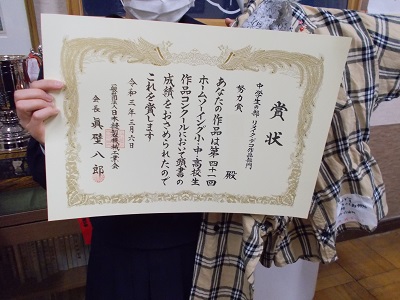 賞状
中学生の部 リメイク・エコ作品部門
努力賞
殿
あなたの作品は第四十一回
ホームソーイング小・中・高校生
作品コンクールにおいて頭書の
成績をおさめられたので
これを賞します
令和三年三月六日
一般社団法人日本縫製機械工業会
会長 眞壁八郎